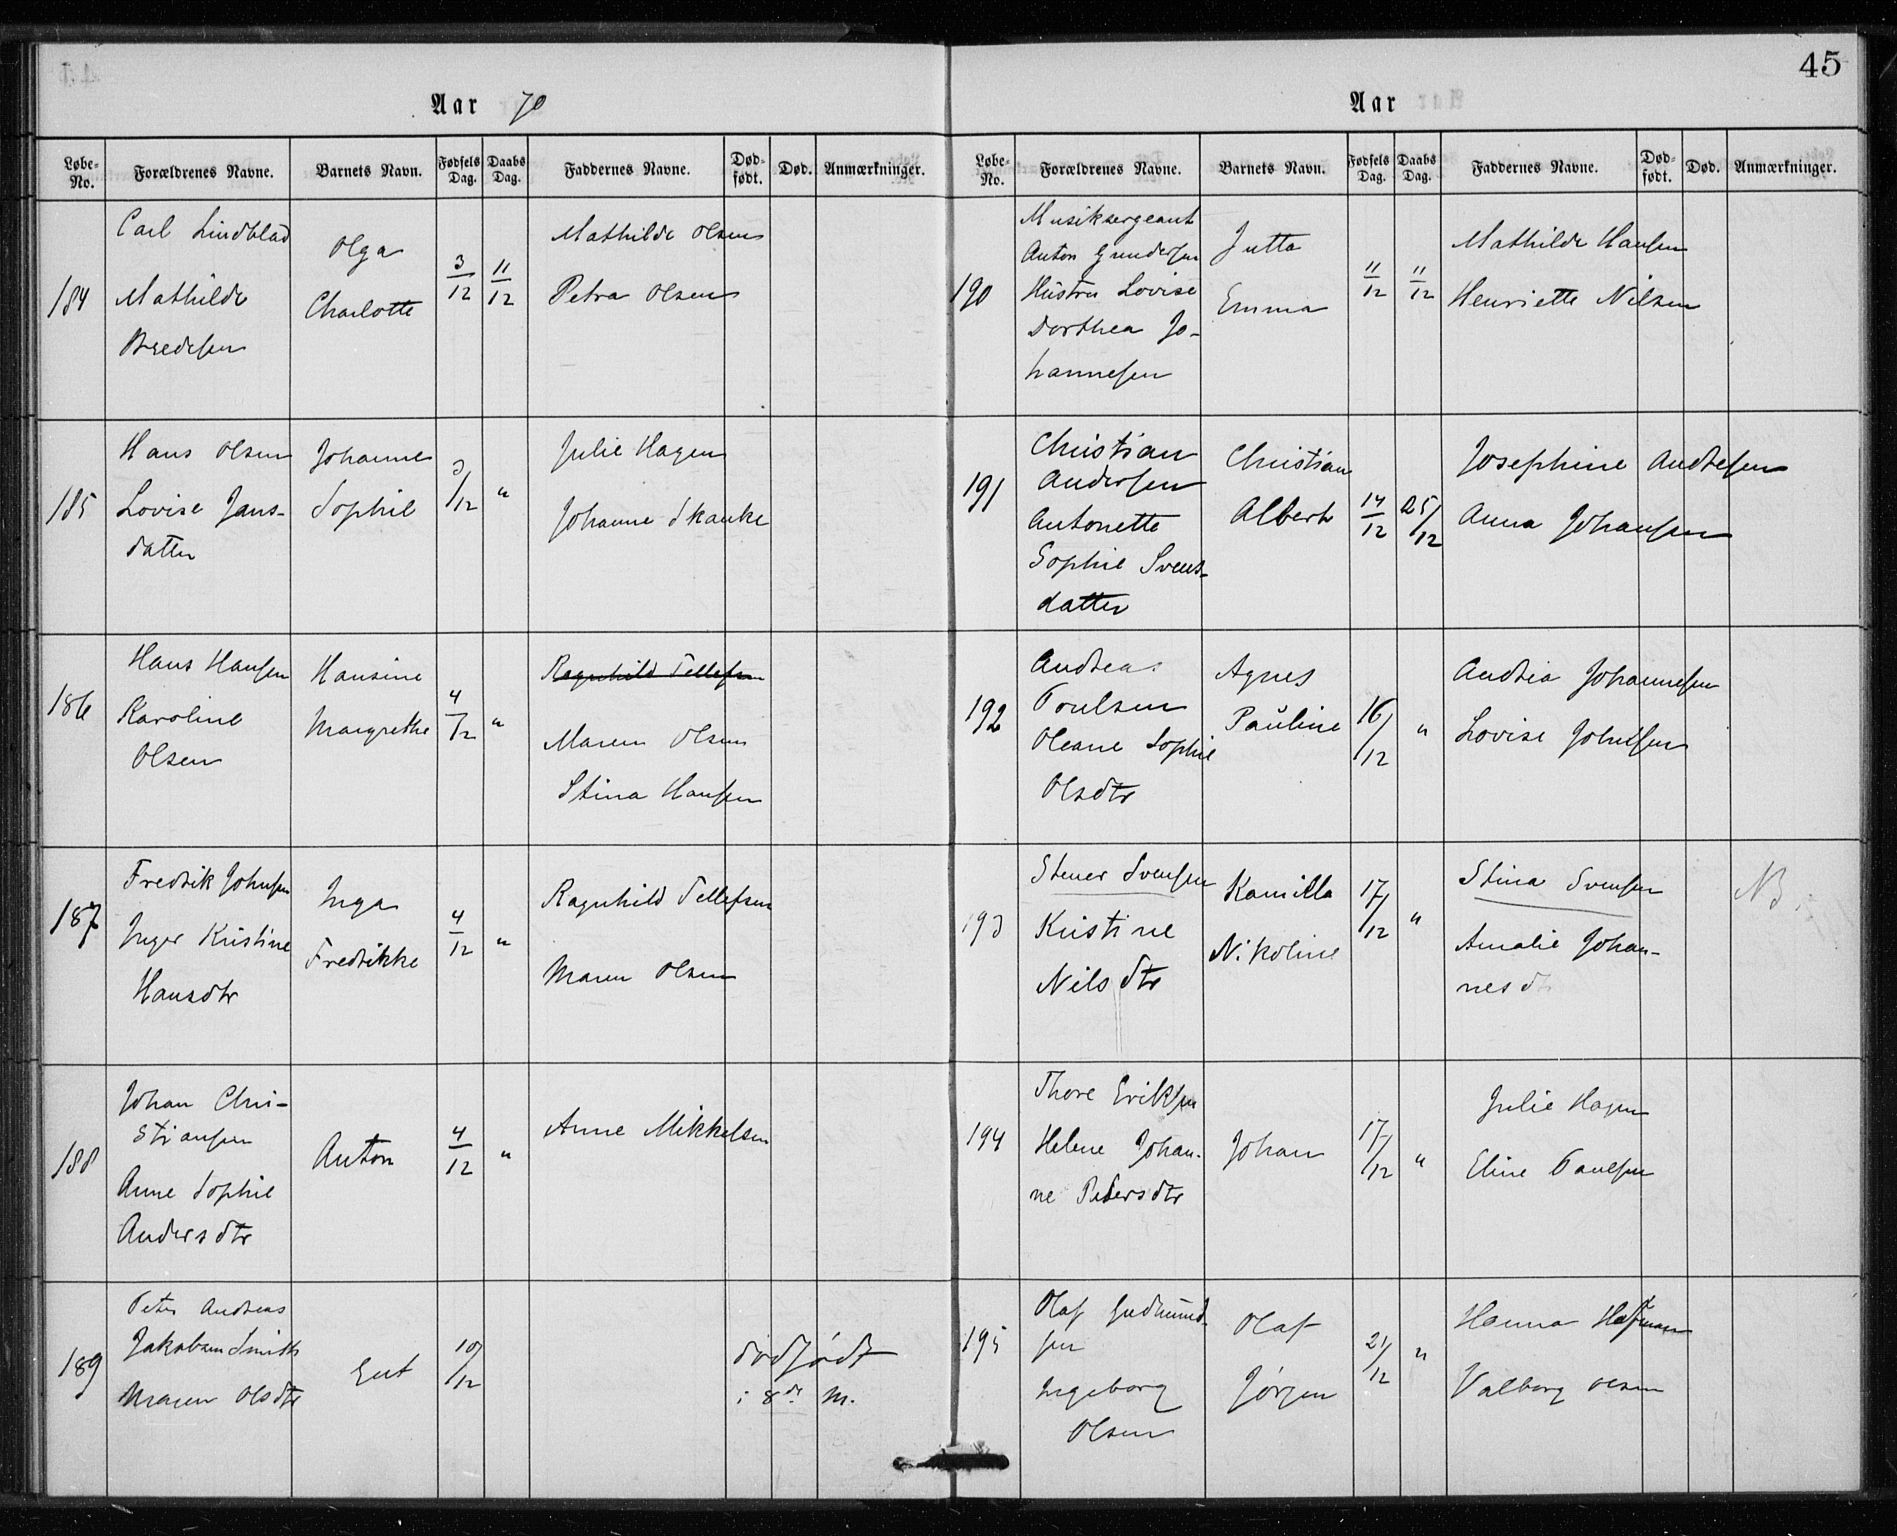 45
Aar 70
Løbe-No. Forældrenes Navne. Barnets Navn. Fødsels Dag. Daabs Dag. Faddernes Navne. Død-født. Død. Anmærkninger.
184
Carl Lindblad
Mathilde
Bredesen
Olga
Charlotte
3/12
11/12
Mathilde Olsen
Petra Olsen
185
Hans Olsen
Lovise Jans-
datter
Johanne
Sophie
3/12
"
Julie Hagen
Johanne Skanke
186
Hans Hansen
Karoline
Olsen
Hansine
Margrethe
4/12
"
Ragnhild Tellefsen
Maren Olsen
Stina Hansen
187
Fredrik Johnsen
Inger Kristine
Hansdtr
Inga
Fredrikke
4/12
"
Ragnhild Tellefsen
Maren Olsen
188
Johan Chri-
stiansen
Anne Sophie
Andersdtr
Anton
4/12
"
Anne Mikkelsen
189
Peter Andreas
Jakobsen Smith
Maren Olsdtr
Gut
10/12
dødfødt
i 8de M.
Aar
Løbe-No. Forældrenes Navne. Barnets Navn. Fødsels Dag. Daabs Dag. Faddernes Navne. Død-født. Død. Anmærkninger.
190
Musiksergeant
Anton Gundersen
Hustru Lovise
Dorthea Jo-
hannesen
Jutta
Emma
11/12
11/12
Mathilde Hansen
Henriette Nilsen
191
Christian
Andersen
Antonette
Sophie Svens-
datter
Christian
Albert
14/12
25/12
Josephine Andresen
Anna Johansen
192
Andreas
Poulsen
Oleane Sophie
Olsdtr
Agnes
Pauline
16/12
"
Andrea Johannesen
Lovise Johnsen
193
Stener Svensen
Kristine
Nilsdtr
Kamilla
Nikoline
17/12
"
Stina Svensen
Amalie Johan-
nesd
NB.
194
Thore Eriksen
Helene Johan-
ne Pedersdtr
Johan
17/12
"
Julie Hagen
Eline Paulsen
195
Olaf Gudmund-
sen
Ingeborg
Olsen
Olaf
Jørgen
21/12
"
Hanna Hofman
Valborg Olsen